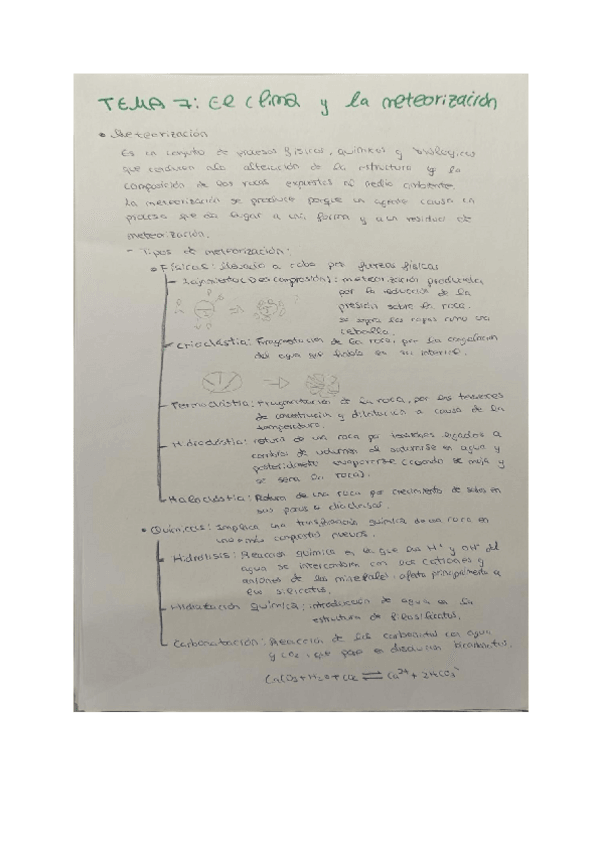 TEMA 7: El clima y la meteorización
• Meteorización
Es un conjunto de procesos físicos, químicos y biológicos
que conducen a la alteración de la estructura y la
composición de las rocas expuestas al medio ambiente.
La meteorización se produce porque un agente causa un
proceso que da lugar a una forma y a un residuo de
meteorización.
- Tipos de meteorización:
• Físicas: llevado a cabo por fuerzas físicas
(Descompresión): meteorización producida
por la reducción de la
presión sobre la roca.
se separa las capas como una
cebolla.
Crioclástia: Fragmentación de la roca, por la congelación
del agua en su interior.
Termoclástia: Fragmentación de la roca, por las tensiones
de contracción y dilatación a causa de la
temperatura.
Hidroclástia: rotura de una roca por tensiones ligados a
cambios de volumen al en agua y
posteriormente evaporarse (cuando se moja y
se seca la roca).
Haloclástia: Rotura de una roca por crecimiento de sales en
sus poros o diaclasas.
• Químicas: implica una transformación química de una roca en
uno o más compuestos nuevos.
Hidrólisis: Reacción química en la que los H⁺ y OH⁻ del
agua se intercambian con los cationes y
aniones de los minerales. afecta principalmente a
los silicatos.
Hidratación química: introducción de agua en la
estructura de filosilicatos.
Carbonatación: Reacción de los carbonatos con agua
y CO₂, que pasa a disolución bicarbonatos.
CaCO₃ + H₂O + CO₂ ⇌ Ca²⁺ + 2HCO₃⁻